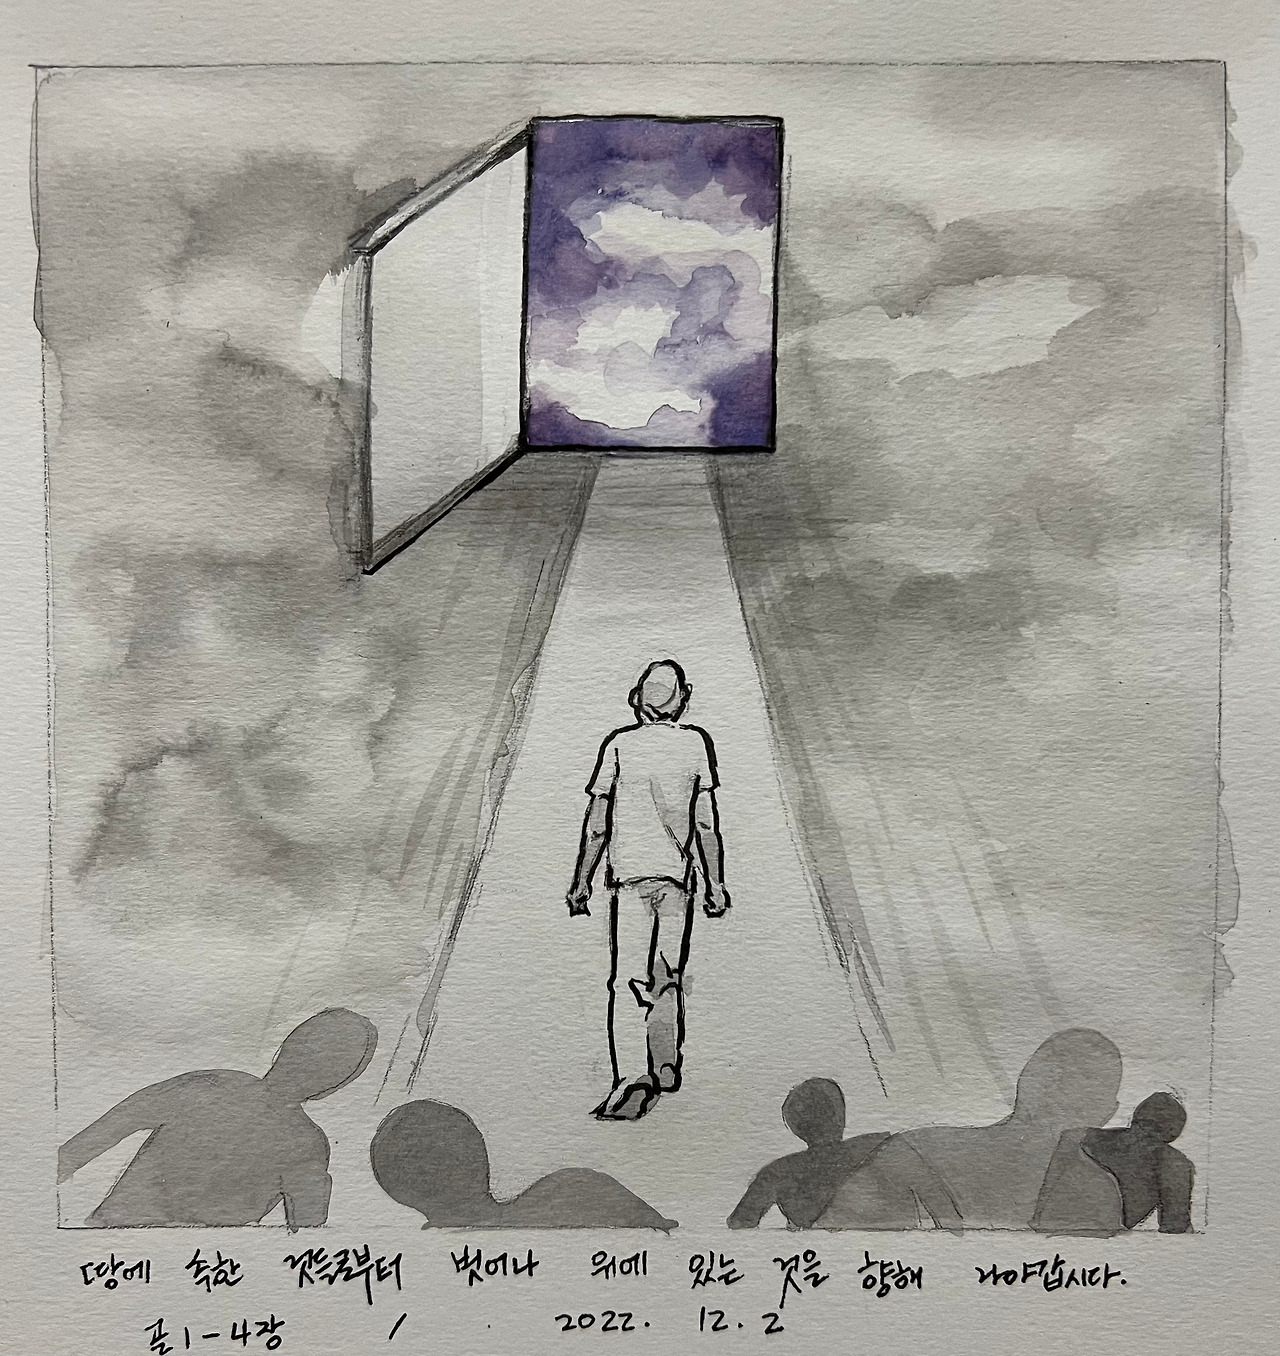 땅에 속한 것들로부터 벗어나 위에 있는 것을 향해 나아갑시다.
골1-4장 / 2022. 12. 2